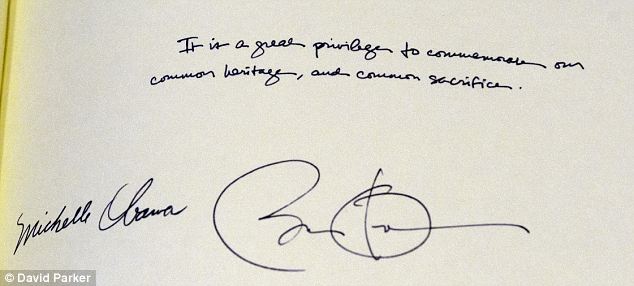 It is a great privilege to commemorate our
common heritage, and common sacrifice.
Michelle Obama
Barack Obama
© David Parker